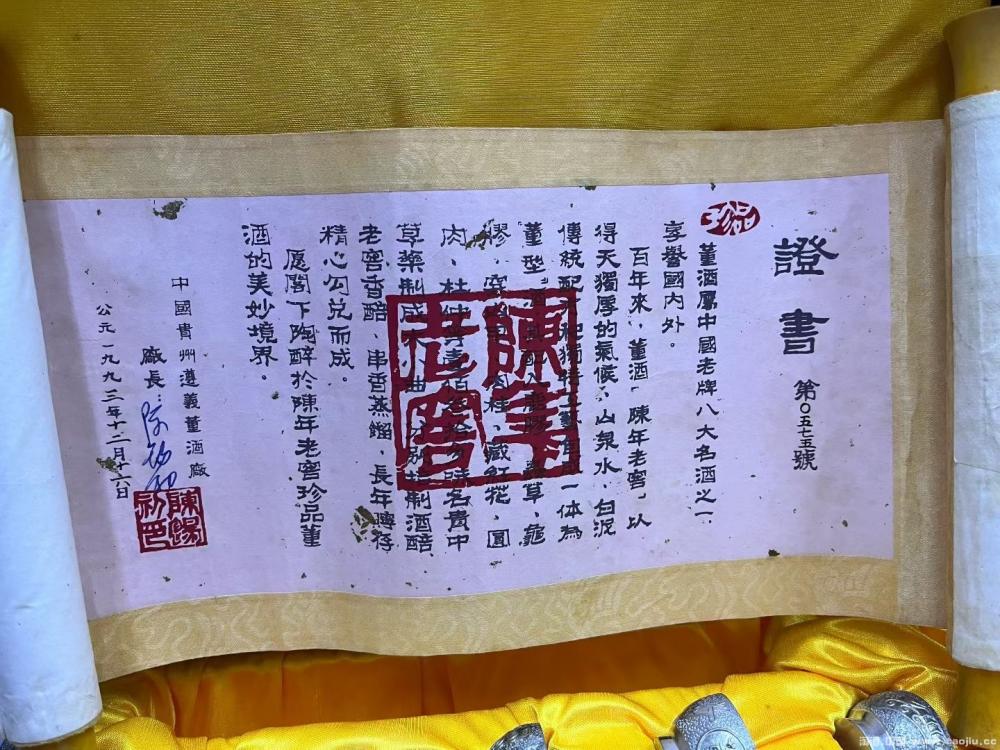 證書
第〇五七五號
珍品
董酒屬中國老牌八大名酒之一,
享譽國內外。
百年來,董酒“陳年老窖”,以
得天獨厚的氣候、山泉水、白泥
傳統配 和獨特 一体為
董型。 草、龜
膠、穿 肉桂、藏紅花、圓
肉、杜仲 味名貴中
草藥制成大曲 分别 制酒醅
老窖香醅、串香蒸餾、長年 存
精心勾兑而成。
愿閣下陶醉於陳年老窖珍品董
酒的美妙境界。
陳年老窖
中國貴州遵義董酒廠
廠長:陳錫初
公元一九九三年十二月十六日
陳錫初印